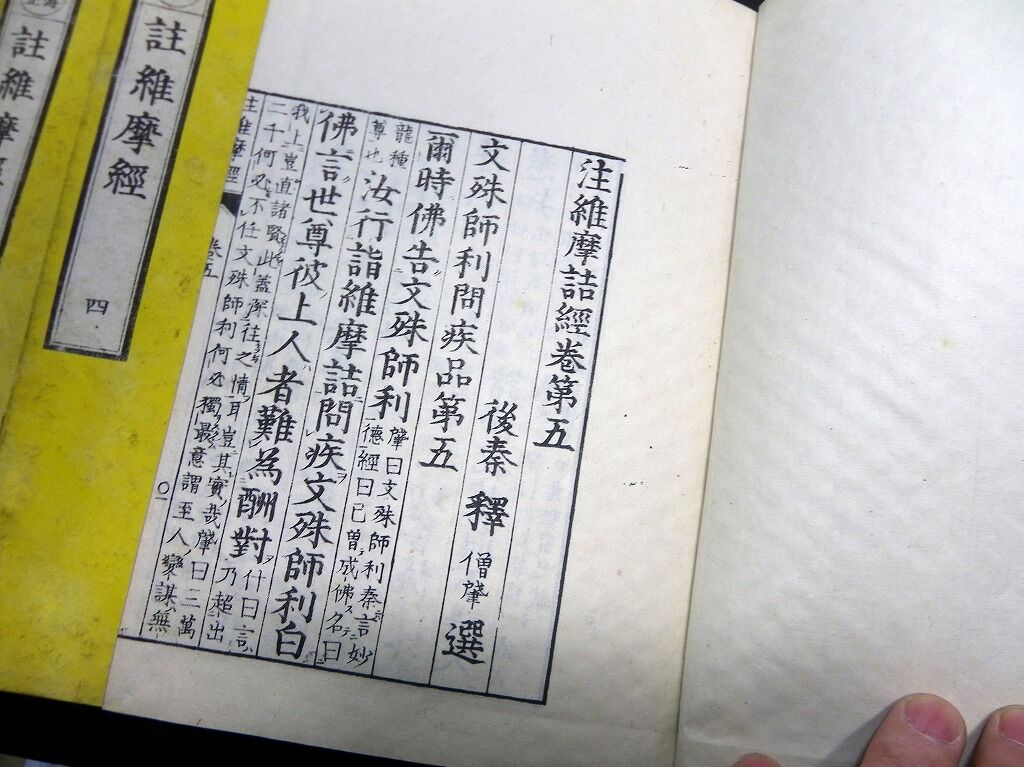 注維摩詰經卷第五
後秦釋僧肇選
文殊師利問疾品第五
爾時佛告文殊師利
肇曰文殊師利秦言妙
德經曰已曾成佛名曰
龍種
尊也
汝行詣維摩詰問疾文殊師利白
佛言世尊彼上人者難為酬對
什曰言
乃超出
我上豈直諸賢此蓋深往之情耳豈其實哉肇曰三萬
二千何必不任文殊師利何必獨最意謂至人變謀無
註維摩經
卷五
〇一
註維摩經
四
註維摩經